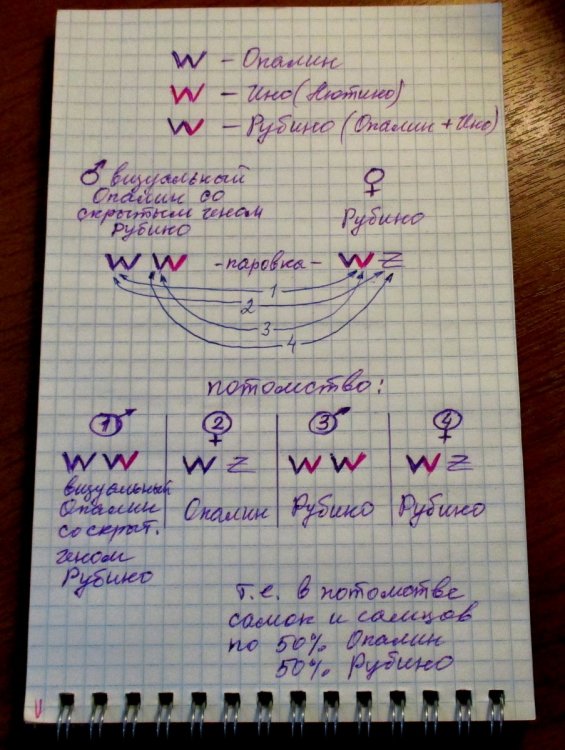 W – Опалин
W – Ино (Лютино)
W – Рубино (Опалин + Ино)
♂ визуальный
Опалин со
скрытым геном
Рубино
♀
Рубино
W W – паровка – W Z
1
2
3
4
потомство:
1 ♂ 2 ♀ 3 ♂ 4 ♀
W W W Z W W W Z
визуальный
Опалин
со скрыт.
геном
Рубино
Опалин
Рубино
Рубино
т.е. в потомстве
самок и самцов
по 50% Опалин
50% Рубино